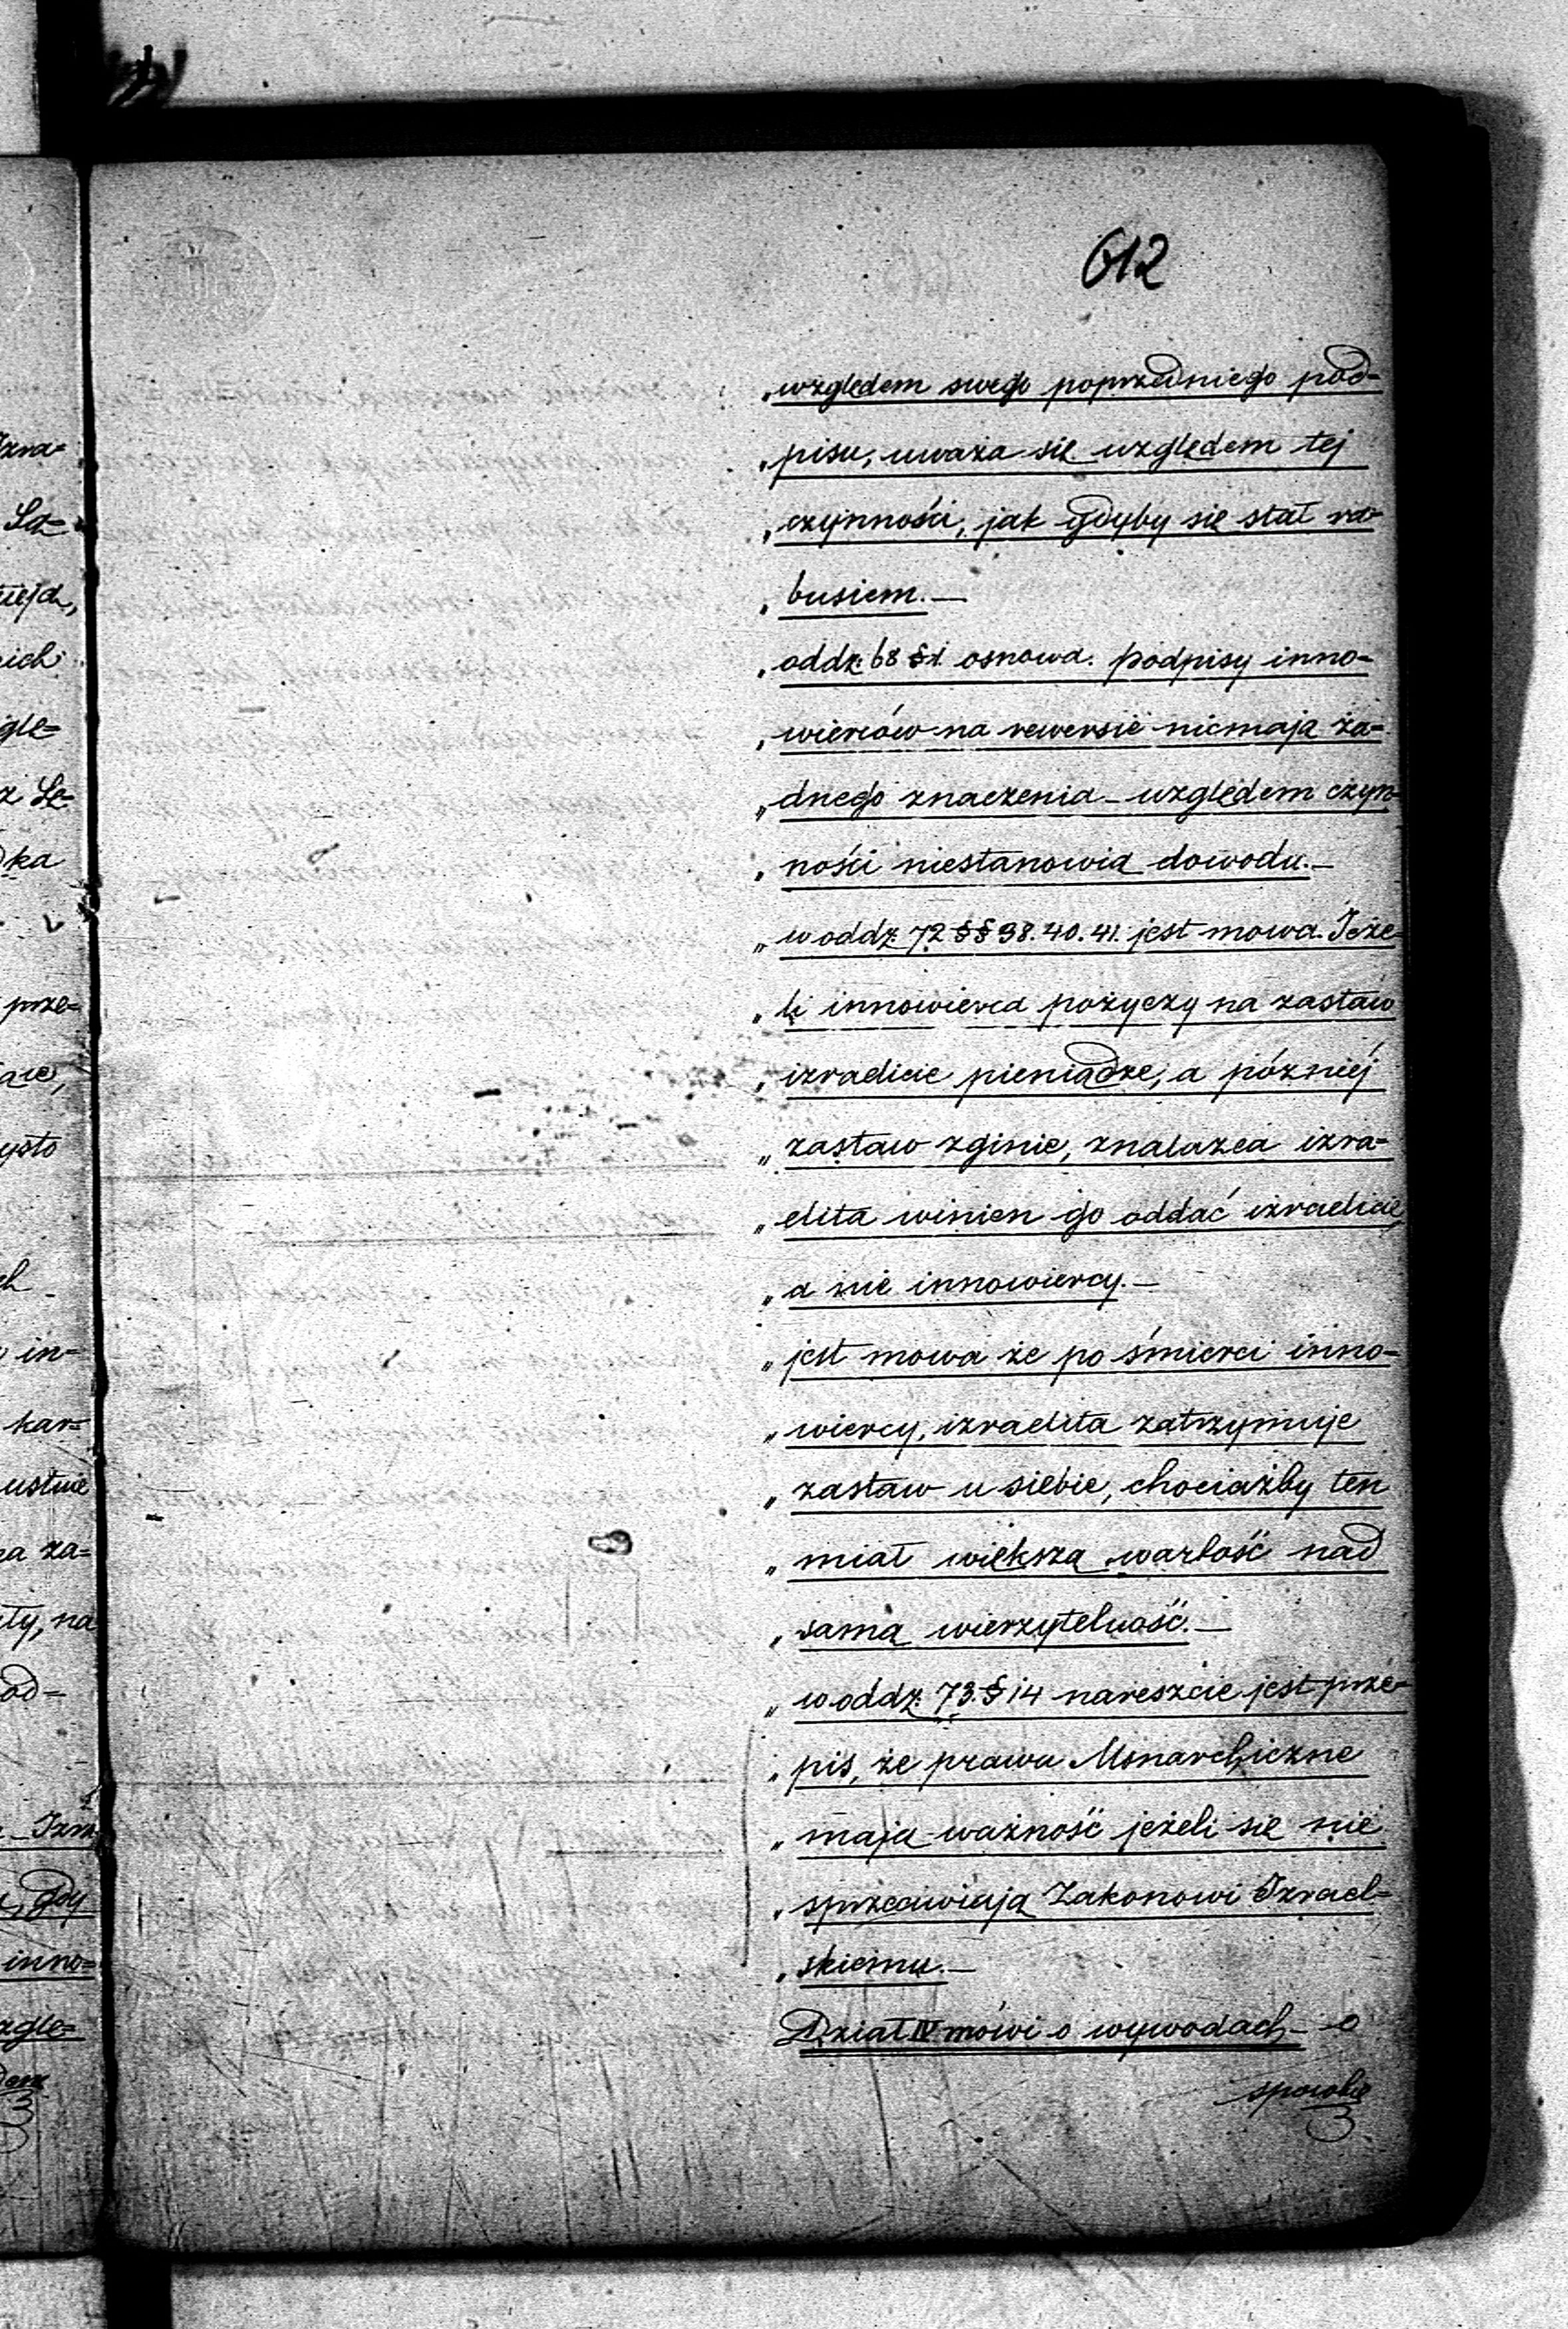 612
„względem swego poprzedniego pod=
„pisu, uważa się względem tej
„czynności, jak gdyby się stał ra=
„busiem.—
„oddz: 68 §1 osnowa. podpisy inno-
„wierców na rewersie niemają ża=
„dnego znaczenia – względem czyn=
„ności niestanowią dowodu.—
„w oddz. 72 §§ 38. 40. 41. jest mowa. Jeże=
„li innowierca pożyczy na zastaw
„izraelicie pieniądze, a później
„zastaw zginie, znalazca izra=
„elita winien go oddać izraelicie,
„a nie innowiercy.—
„jest mowa że po śmierci inno-
„wiercy, izraelita zatrzymuje
„zastaw u siebie, chociażby ten
„miał większą wartość nad
„samą wierzytelność.—
„w oddz. 73. § 14 nareszcie jest prze-
„pis, że prawa Monarchiczne
„mają ważność jeżeli się nie
„sprzeciwiają Zakonowi Izrael=
„skiemu.—
Dział IV mówi o wywodach – o
sposobie
Izra=
Są=
nich
ględ=
ka
prze=
in=
kar=
ustnie
za=
na
od=
gdy
inno=